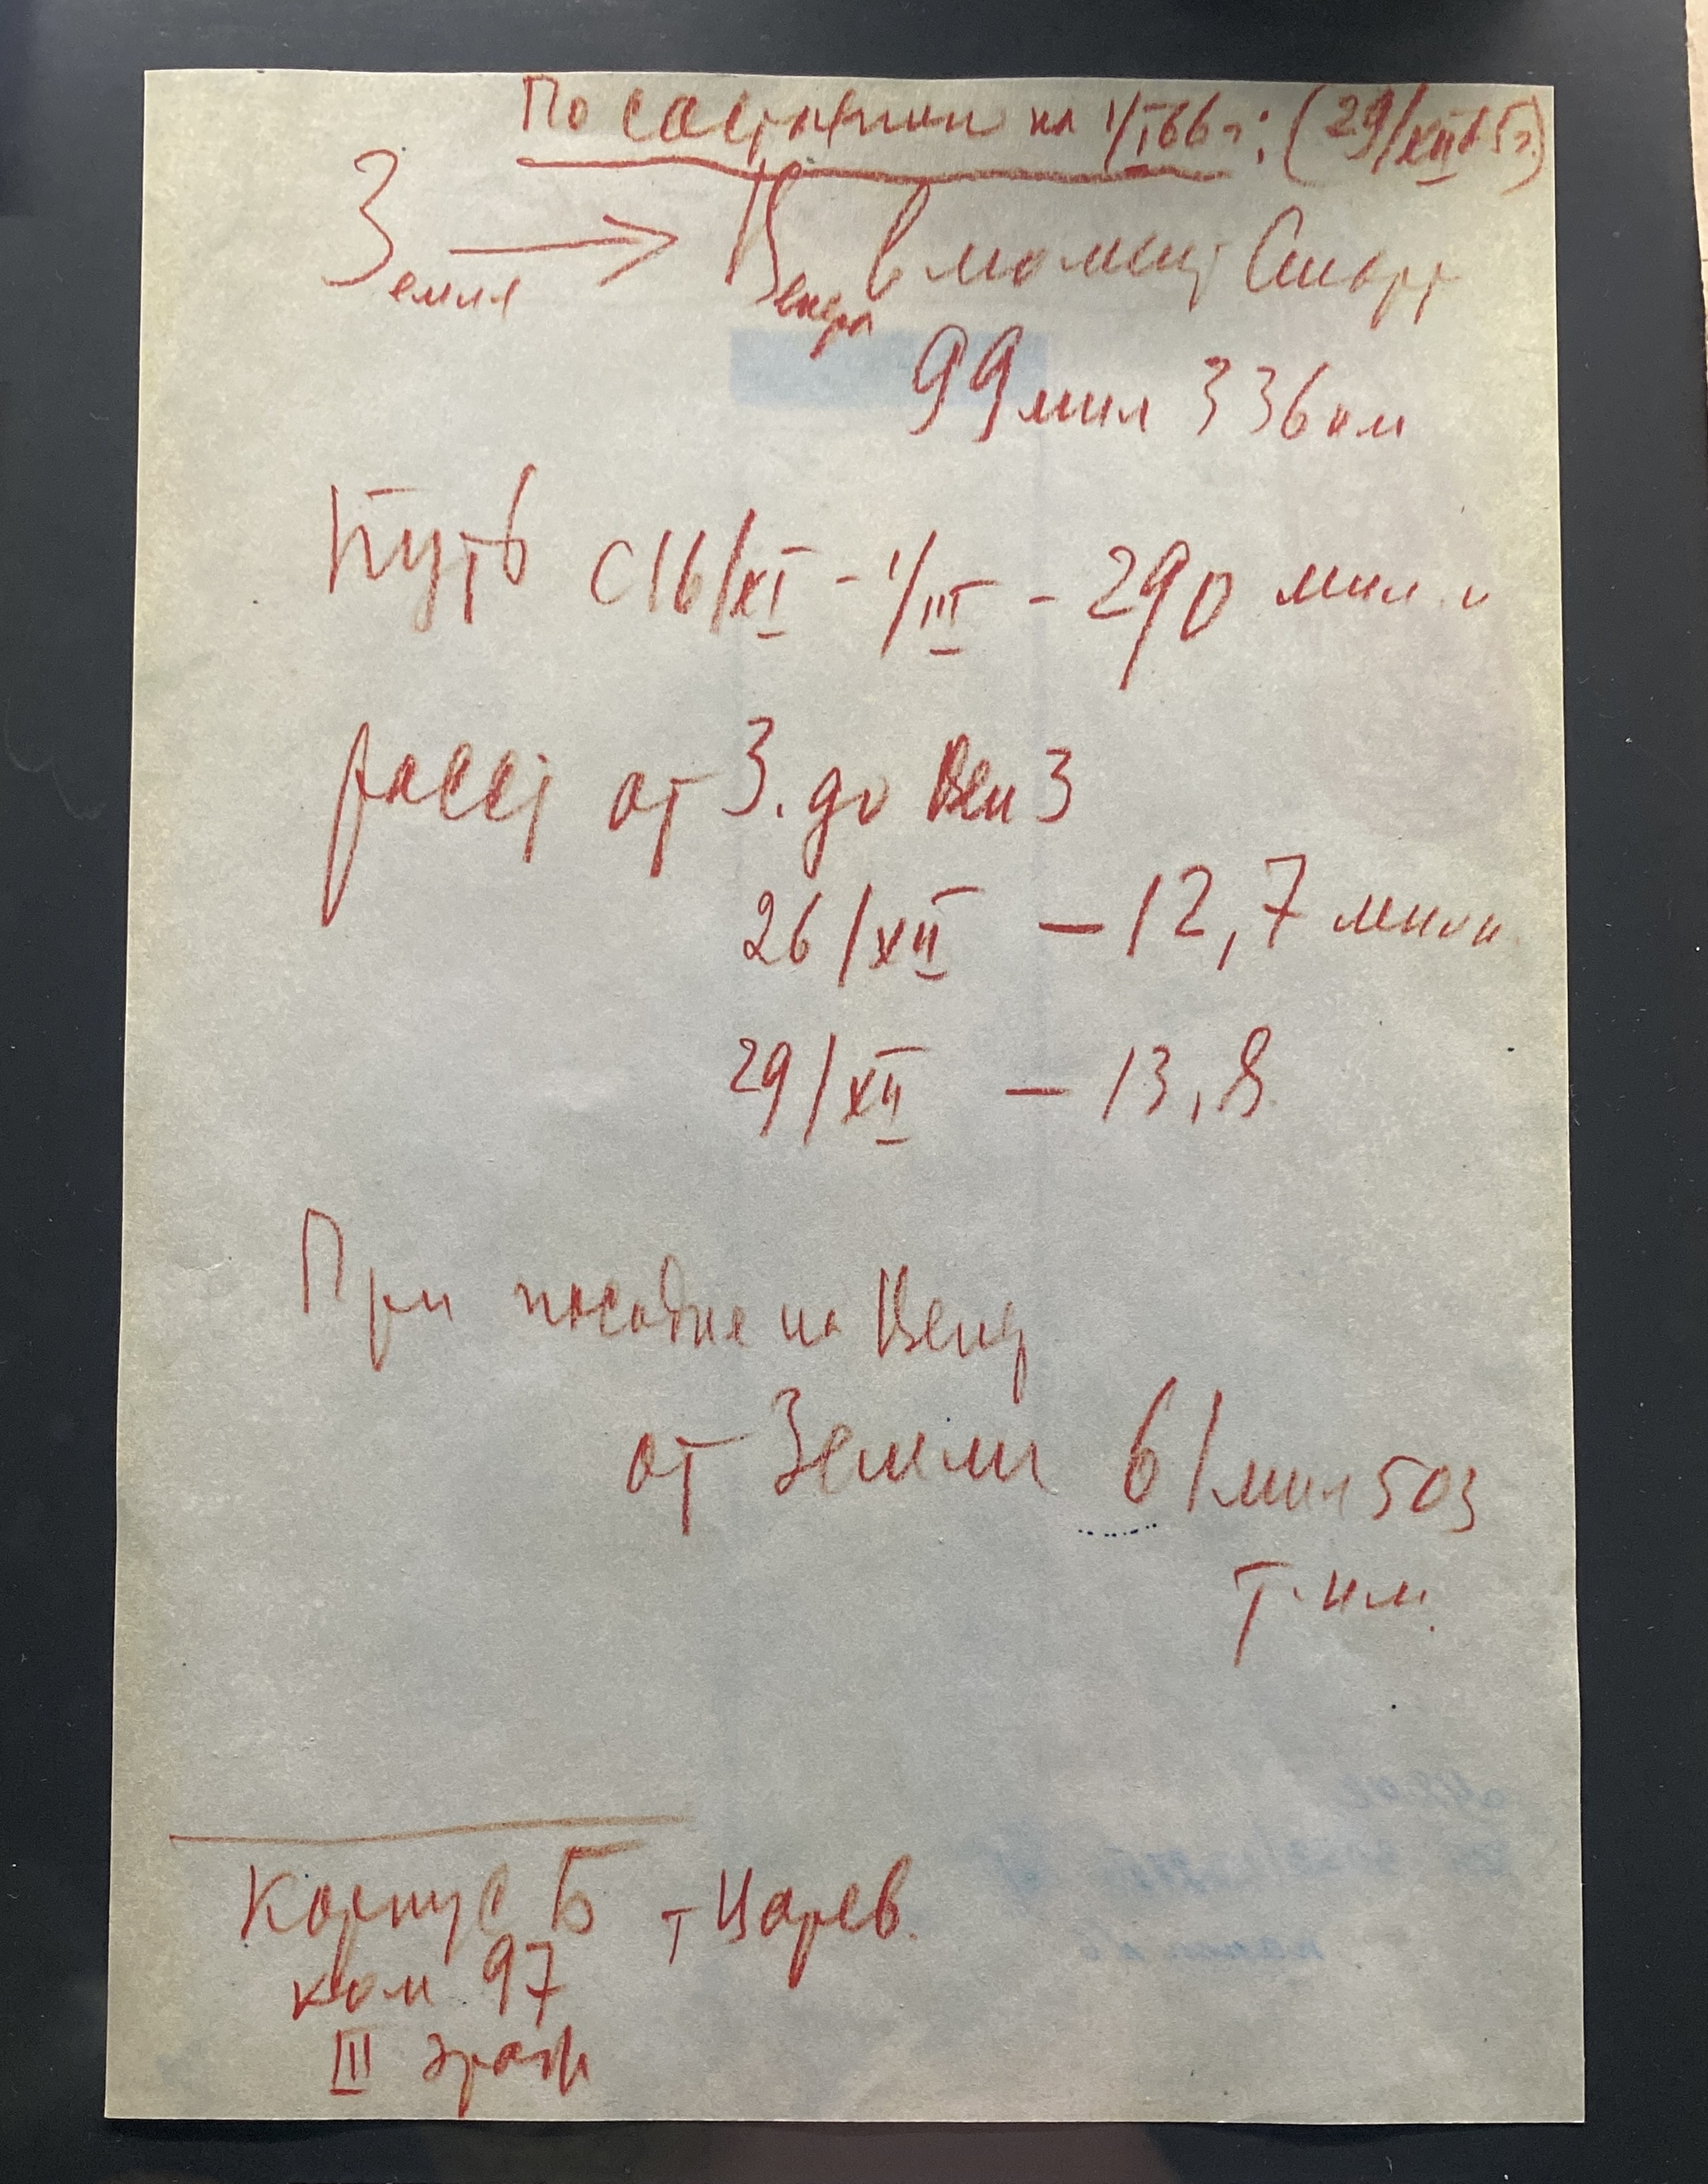 По состоянию на 1/I 66 г: (29/XII 65 г.)
Земля → Венера в момент Старт
99 мил 336 км
Путь с 16/XI - 1/III - 290 мил. к
расст от З. до Вен 3
26/XII — 12,7 милл
29/XII — 13,8
При посадке на Венер
от Земли 61 мил 503
Т. км.
Корпус Б т Царев.
ком 97
III этаж